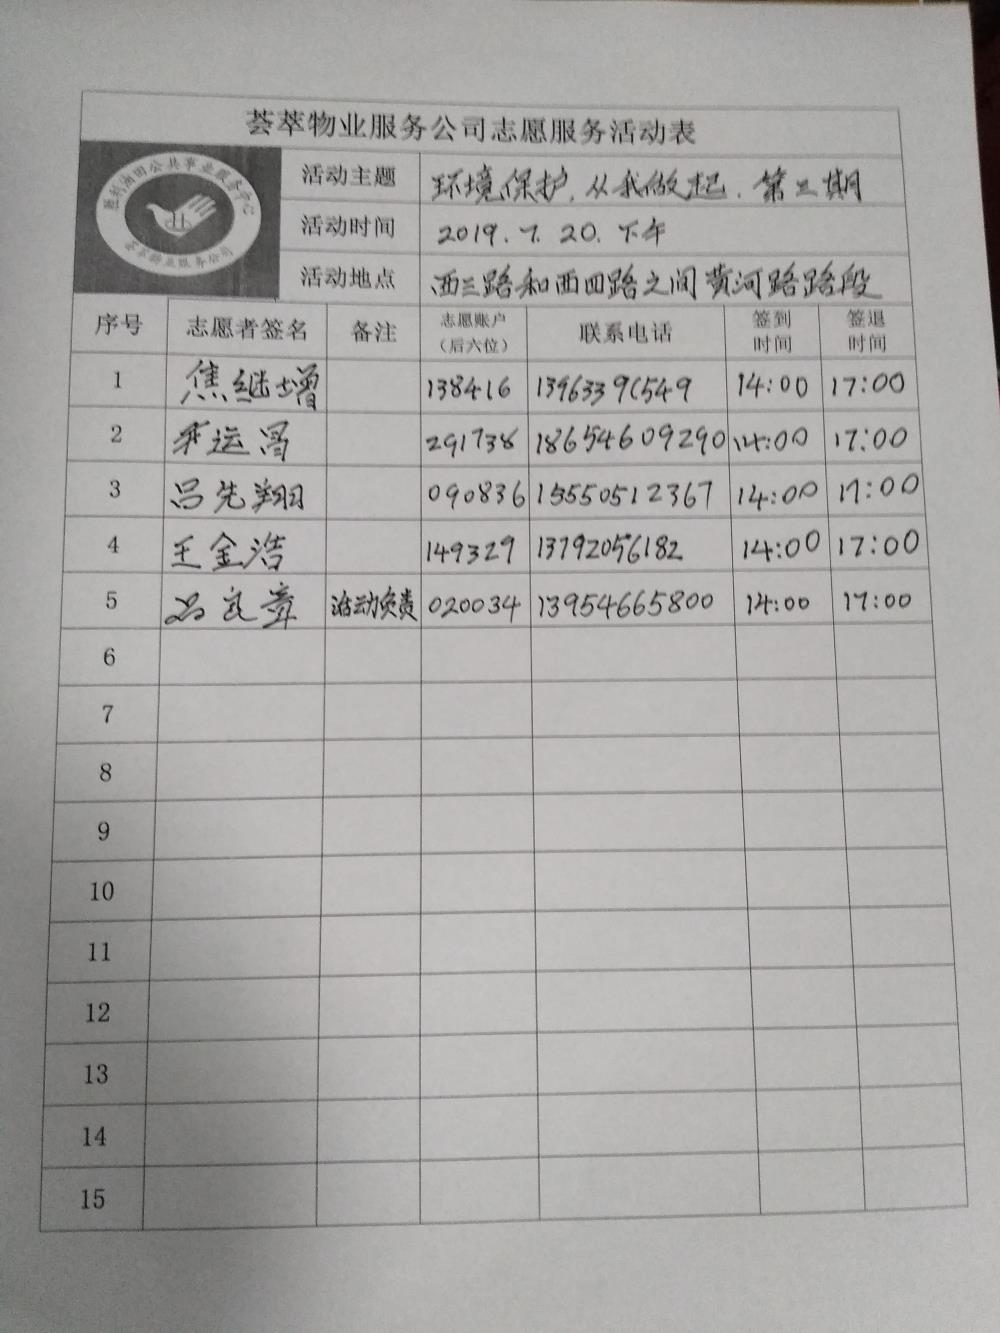 荟萃物业服务公司志愿服务活动表
胜利油田公共事业服务中心
荟萃物业服务公司
活动主题 环境保护,从我做起.第三期
活动时间 2019.7.20.下午
活动地点 西三路和西四路之间黄河路路段
序号 志愿者签名 备注 志愿账户（后六位） 联系电话 签到时间 签退时间
1 焦继增 138416 14:00 17:00
2 291738 18654609290 14:00 17:00
3 吕先翔 090836 15550512367 14:00 17:00
4 王金浩 149329 13792056182 14:00 17:00
5 活动负责 020034 13954665800 14:00 17:00
6
7
8
9
10
11
12
13
14
15